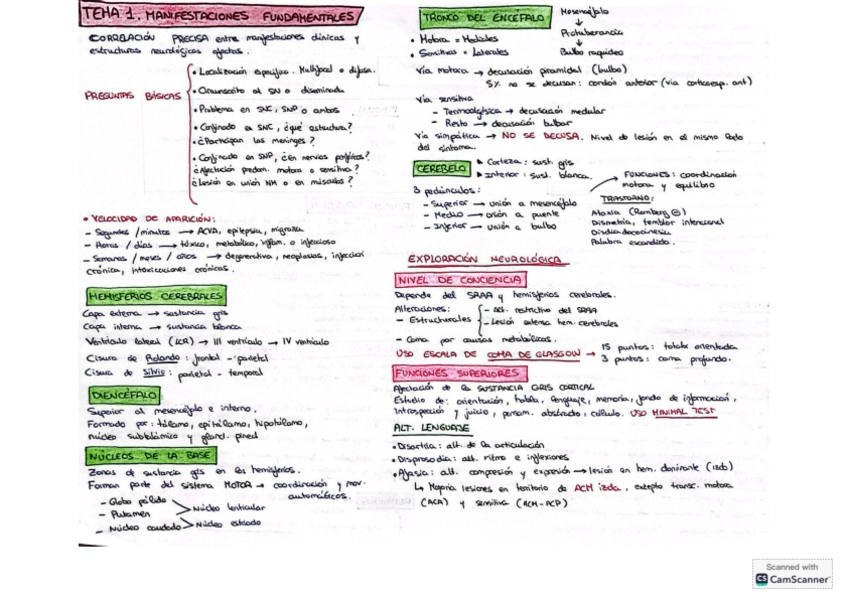 TEMA 1. MANIFESTACIONES FUNDAMENTALES
CORRELACIÓN PRECISA entre manifestaciones clínicas y
estructuras neurológicas afectas.
PREGUNTAS BÁSICAS
• Localización específica. Multifocal o difusa.
• Circunscrito al SN o diseminada
• Problema en SNC, SNP o ambos
• Confinado en SNC, ¿qué estructura?
• ¿Participan las meninges?
• Confinado en SNP, ¿en nervios periféricos?
¿Afectación predom. motora o sensitiva?
¿Lesión en unión NM o en músculos?
• VELOCIDAD DE APARICIÓN:
- Segundos / minutos → ACVA, epilepsia, migraña
- Horas / días → tóxico, metabólico, inflam. o infeccioso
- Semanas / meses / años → degenerativa, neoplasias, infección
crónica, intoxicaciones crónicas.
HEMISFERIOS CEREBRALES
Capa externa → sustancia gris
Capa interna → sustancia blanca
Ventrículo lateral (LCR) → III ventrículo → IV ventrículo
Cisura de Rolando: frontal - parietal
Cisura de Silvio: parietal - temporal
DIENCÉFALO
Superior al mesencéfalo e interno.
Formado por: tálamo, epitálamo, hipotálamo,
núcleo subtalámico y gland. pineal
NÚCLEOS DE LA BASE
Zonas de sustancia gris en los hemisferios.
Forman parte del sistema MOTOR → coordinación y mov.
automáticos.
- Globo pálido
- Putamen
Núcleo lenticular
- Núcleo caudado
Núcleo estriado
TRONCO DEL ENCÉFALO
Mesencéfalo
↓
Protuberancia
↓
Bulbo raquídeo
• Motora = Mediales
• Sensitivas = Laterales
Vía motora → decusación piramidal (bulbo)
5% no se decusan: cordón anterior (vía corticoesp. ant)
Vía sensitiva
- Termoalgésica → decusación medular
- Resto → decusación bulbar
Vía simpática → NO SE DECUSA. Nivel de lesión en el mismo lado
del síntoma.
CEREBELO
Corteza: sust. gris
Interior: Sust. blanca.
3 pedúnculos:
- Superior → unión a mesencéfalo
- Medio → unión a puente
- Inferior → unión a bulbo
FUNCIONES: coordinación
motora y equilibrio
TRASTORNO:
Ataxia (Romberg ⊖)
Dismetría, temblor intencional
Disdiadococinesia
Palabra escandida.
EXPLORACIÓN NEUROLÓGICA
NIVEL DE CONCIENCIA
Depende del SRAA y hemisferios cerebrales.
Alteraciones:
- Estructurales
- Alt. restrictiva del SRAA
- Lesión extensa hem. cerebrales
- Coma por causas metabólicas.
USO ESCALA DE COMA DE GLASGOW →
15 puntos: totalte orientada
3 puntos: coma profundo.
FUNCIONES SUPERIORES
Afectación de la SUSTANCIA GRIS CORTICAL
Estudio de: orientación, habla, lenguaje, memoria, fondo de información,
Introspección y juicio, pensam. abstracto, cálculo. USO MINIMAL TEST
ALT. LENGUAJE
• Disartria: alt. de la articulación
• Disprosodia: alt. ritmo e inflexiones
• Afasia: alt. compresión y expresión → lesión en hem. dominante (izdo)
↳ Mayoría lesiones en territorio de ACM izda, excepto transc. motora
(ACA) y sensitiva (ACM-ACP)
Scanned with
CS CamScanner